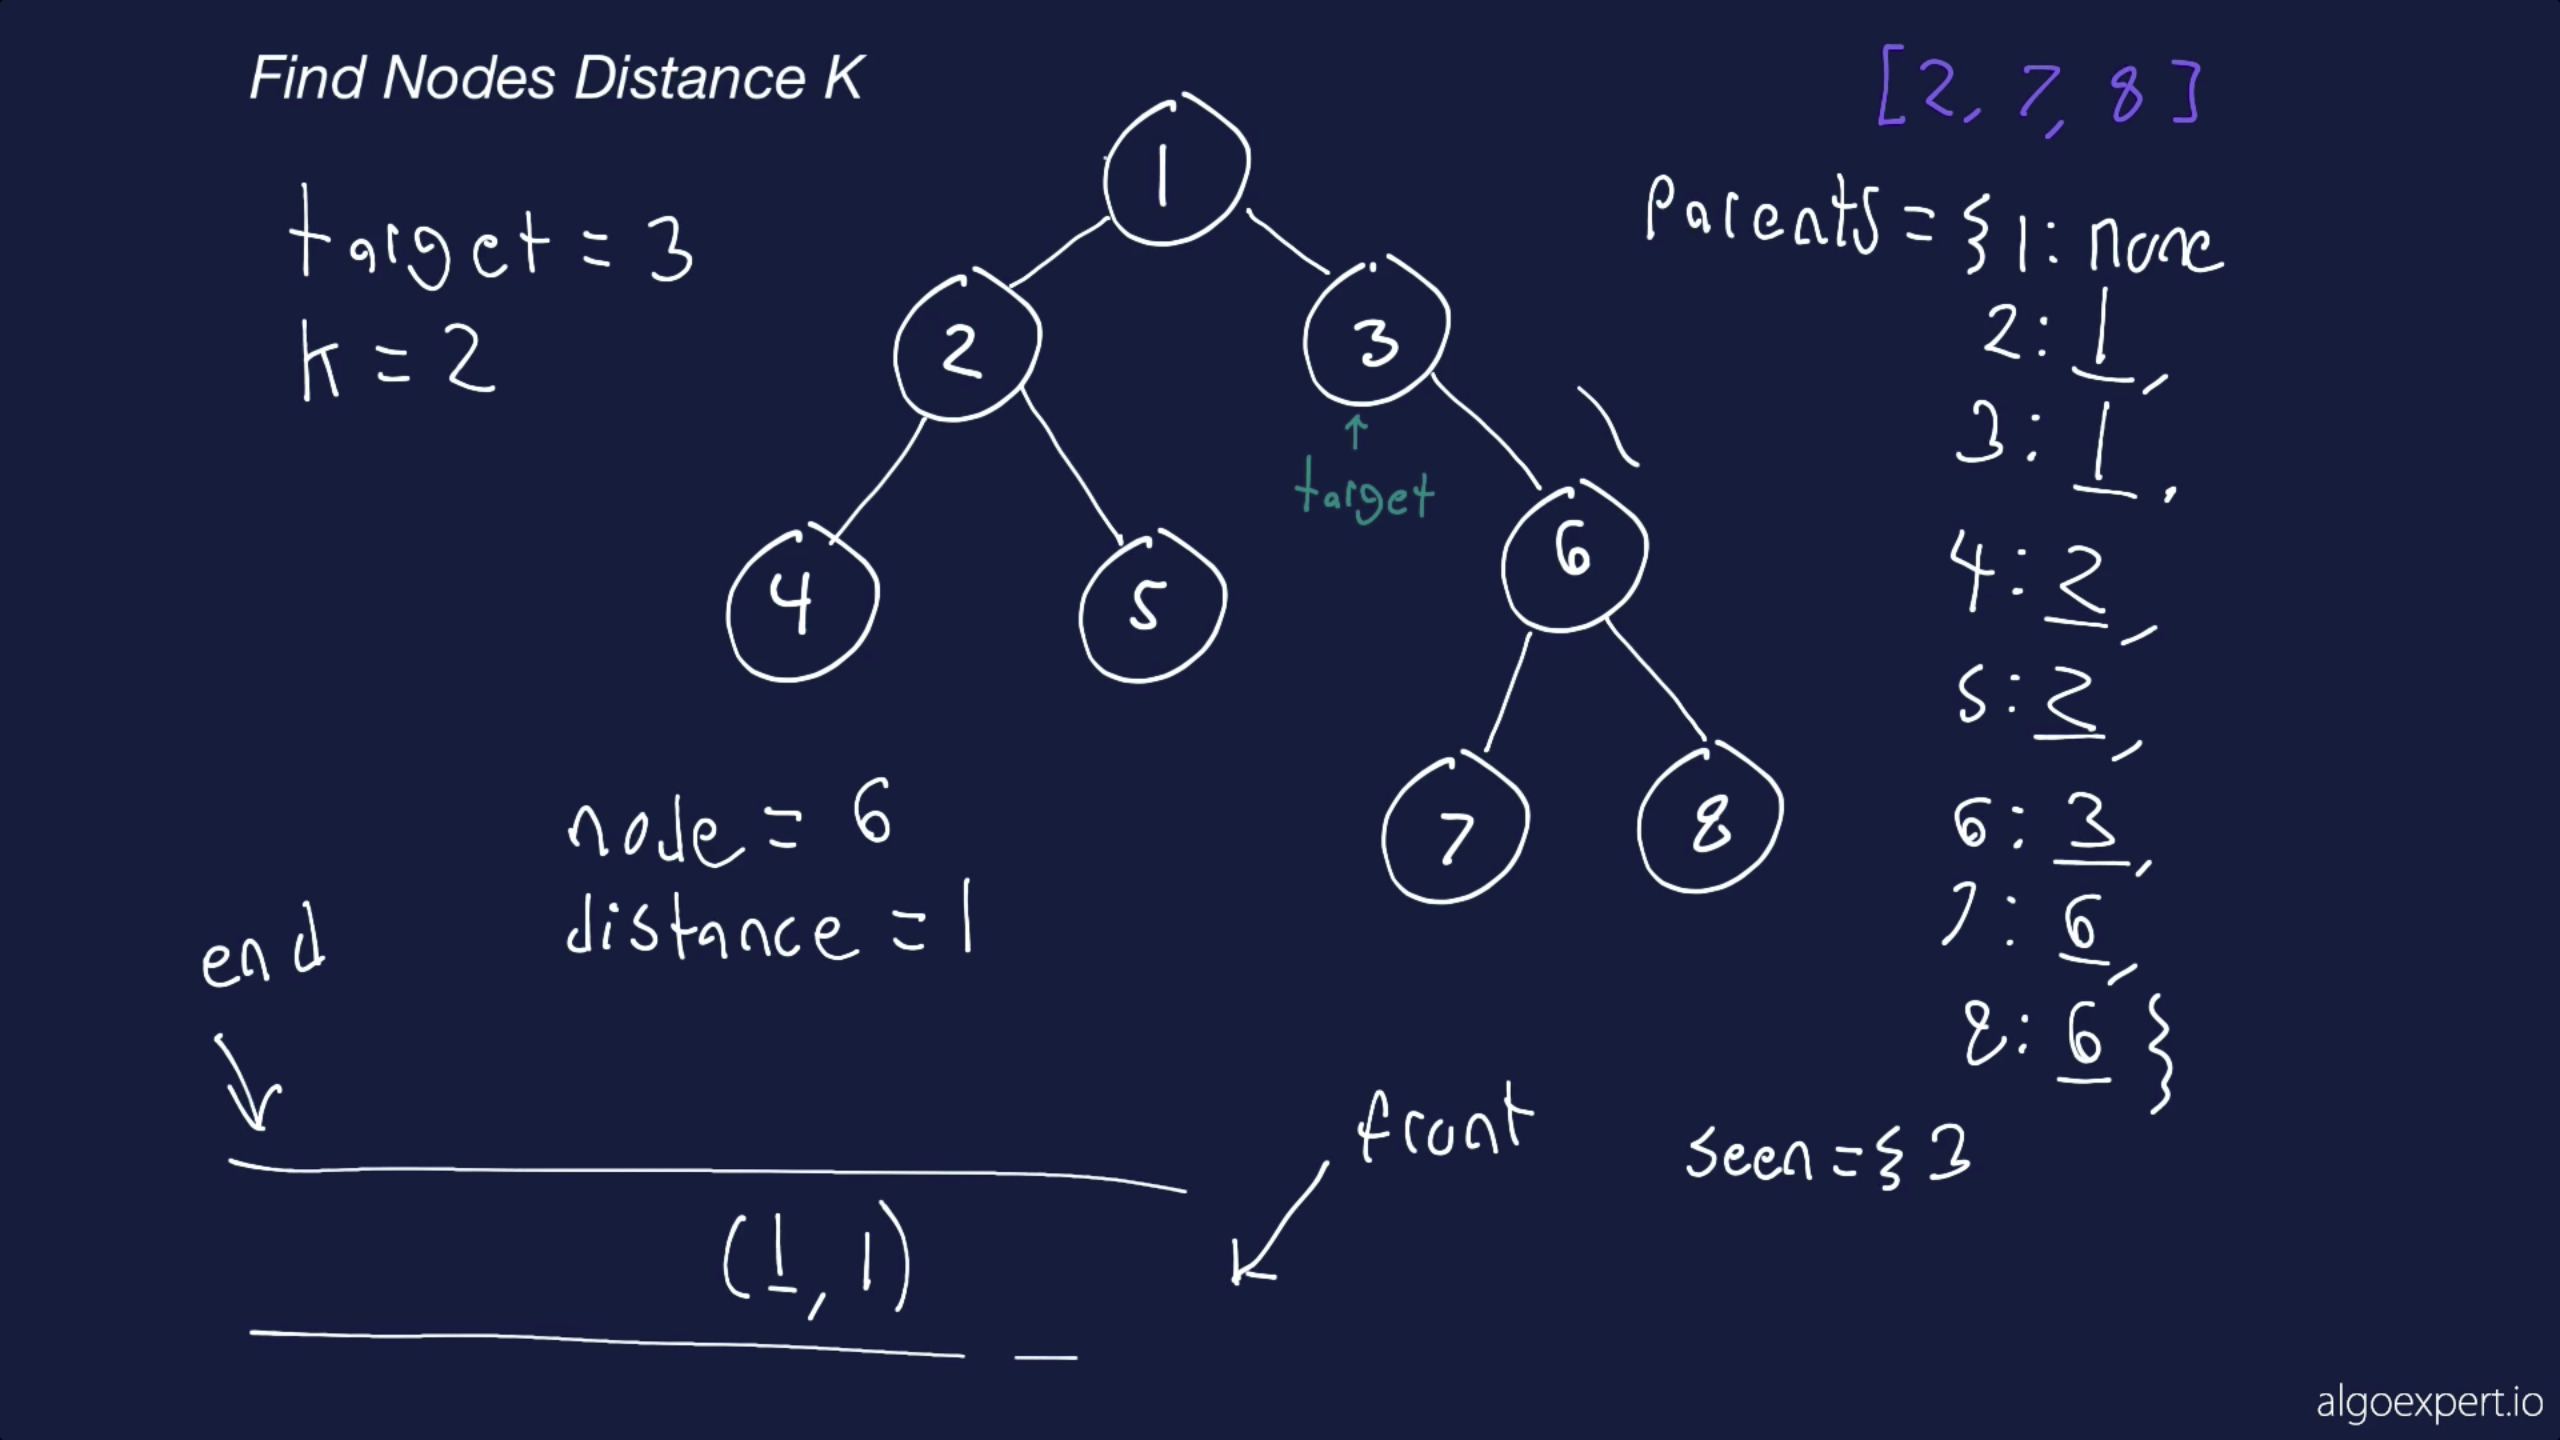 Find Nodes Distance K
[2, 7, 8]
target = 3
k = 2
1
2
3
target
4
5
6
7
8
Parents = {1: none
2: 1,
3: 1,
4: 2,
5: 2,
6: 3,
7: 6,
8: 6}
node = 6
distance = 1
end
front
seen = {3
(1, 1)
algoexpert.io